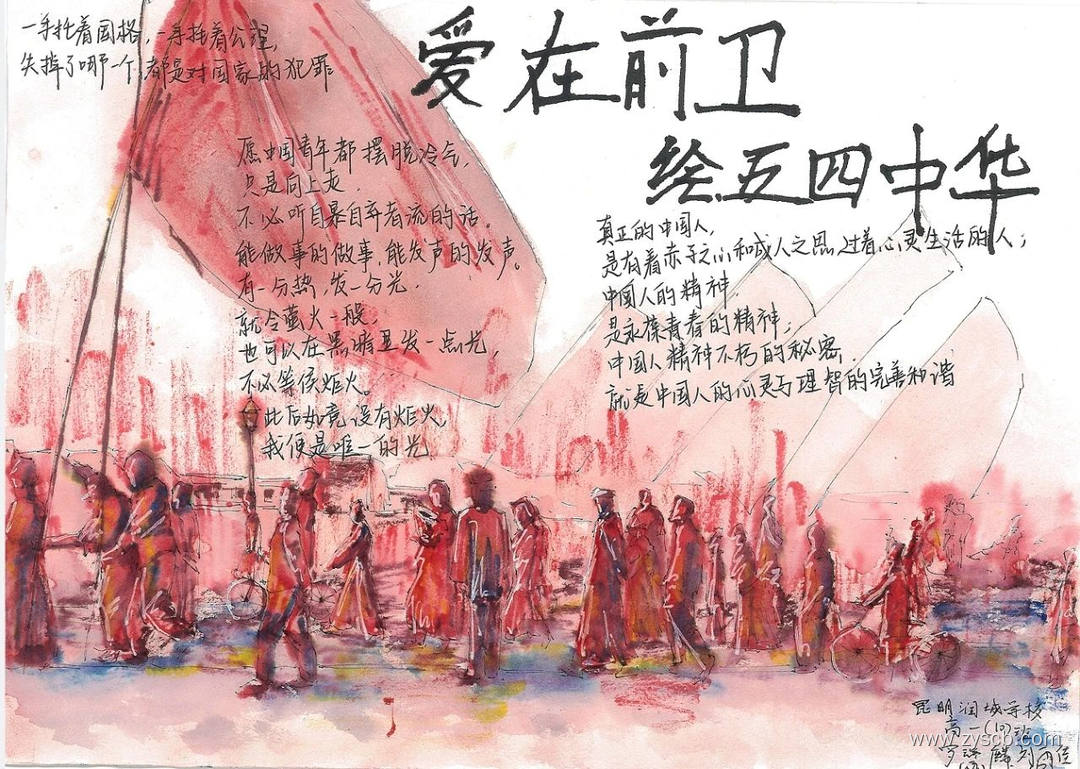 爱在前卫
绘五四中华
一手托着国格，一手托着公理，
失掉了哪一个，都是对国家的犯罪
愿中国青年都摆脱冷气，
只是向上走，
不必听自暴自弃者流的话。
能做事的做事，能发声的发声。
有一分热，发一分光，
就令萤火一般，
也可以在黑暗里发一点光，
不必等候炬火。
此后如竟没有炬火，
我便是唯一的光
真正的中国人，
是有着赤子之心和成人之思，过着心灵生活的人；
中国人的精神，
是永葆青春的精神；
中国人精神不朽的秘密，
就是中国人的心灵与理智的完善和谐
昆明润城学校
高一(10)班
www.zyscb.com